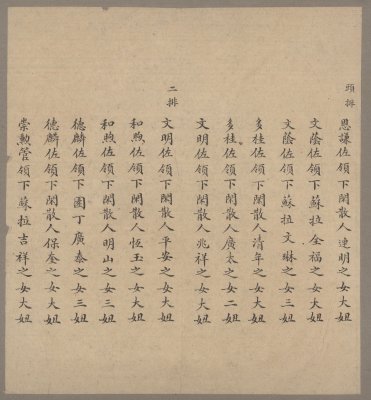 頭排
恩謙佐領下閑散人達明之女大妞
文蔭佐領下蘇拉全福之女大妞
文蔭佐領下蘇拉文琳之女三妞
多桂佐領下閑散人清年之女大妞
多桂佐領下閑散人廣太之女二妞
文明佐領下閑散人兆祥之女大妞
二排
文明佐領下閑散人平安之女大妞
和煦佐領下閑散人恆玉之女大妞
和煦佐領下閑散人明山之女三妞
德麟佐領下園丁廣泰之女三妞
德麟佐領下閑散人保奎之女大妞
崇勲管領下蘇拉吉祥之女大妞